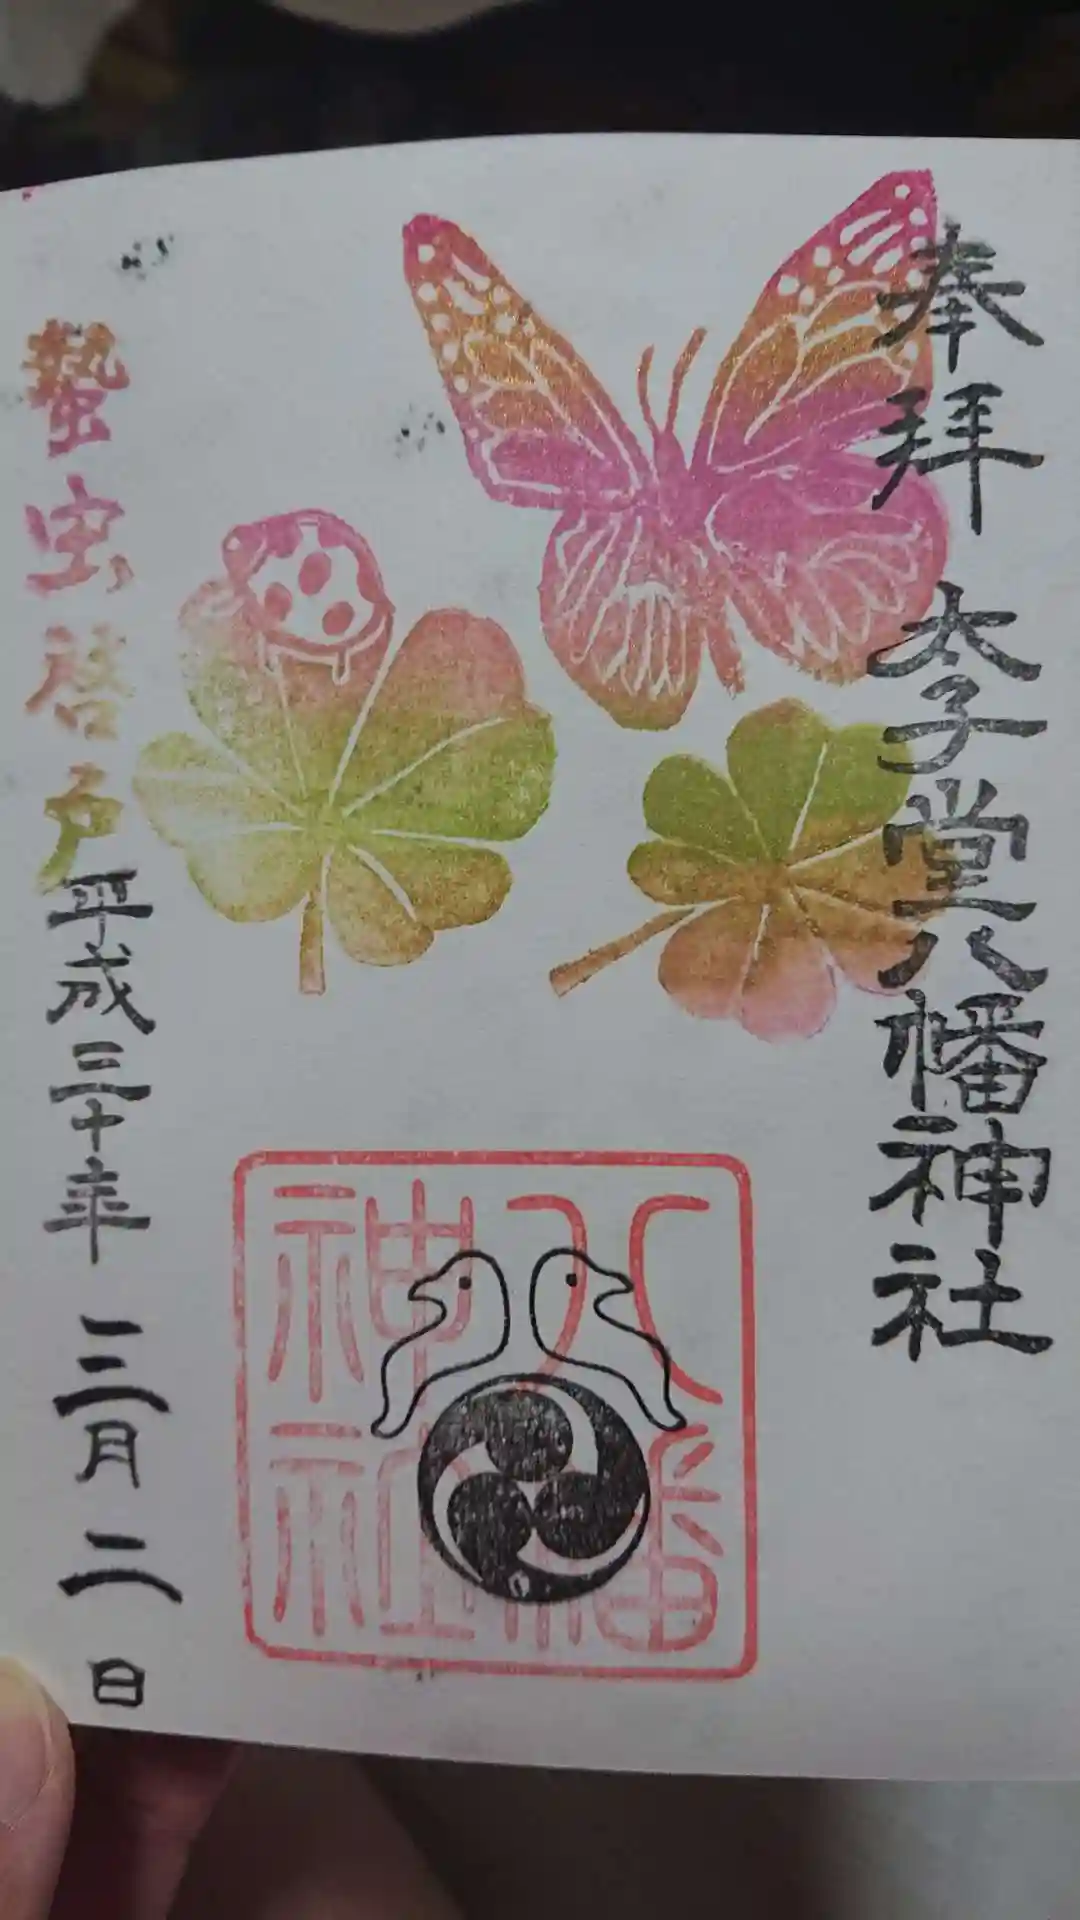 奉拝 太子堂八幡神社
八幡神社
蟄虫啓戸
平成三十年 三月 二日